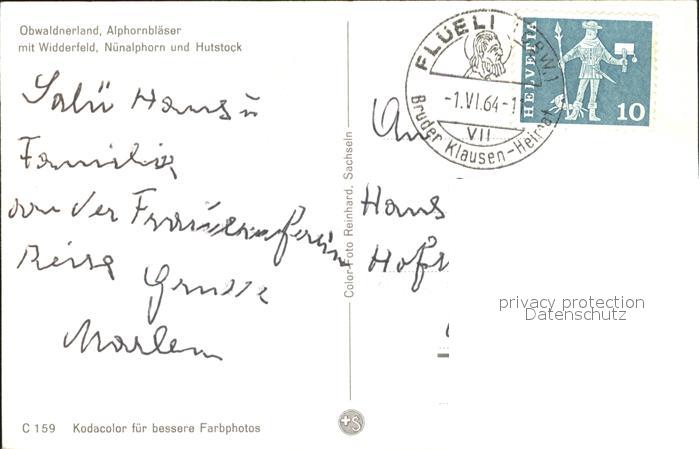 Obwaldnerland, Alphornbläser
mit Widderfeld, Nünalphorn und Hutstock
Salü Hans u
Familie
von der Frauenverein
Reise
Grüsse
Marlen
C 159 Kodacolor für bessere Farbphotos
Color-Foto Reinhard, Sachseln
+S
FLÜELI (OBW.)
-1.VI.64-1
VII
Bruder Klausen-Heimat
HELVETIA
10
An
Hans
privacy protection
Datenschutz